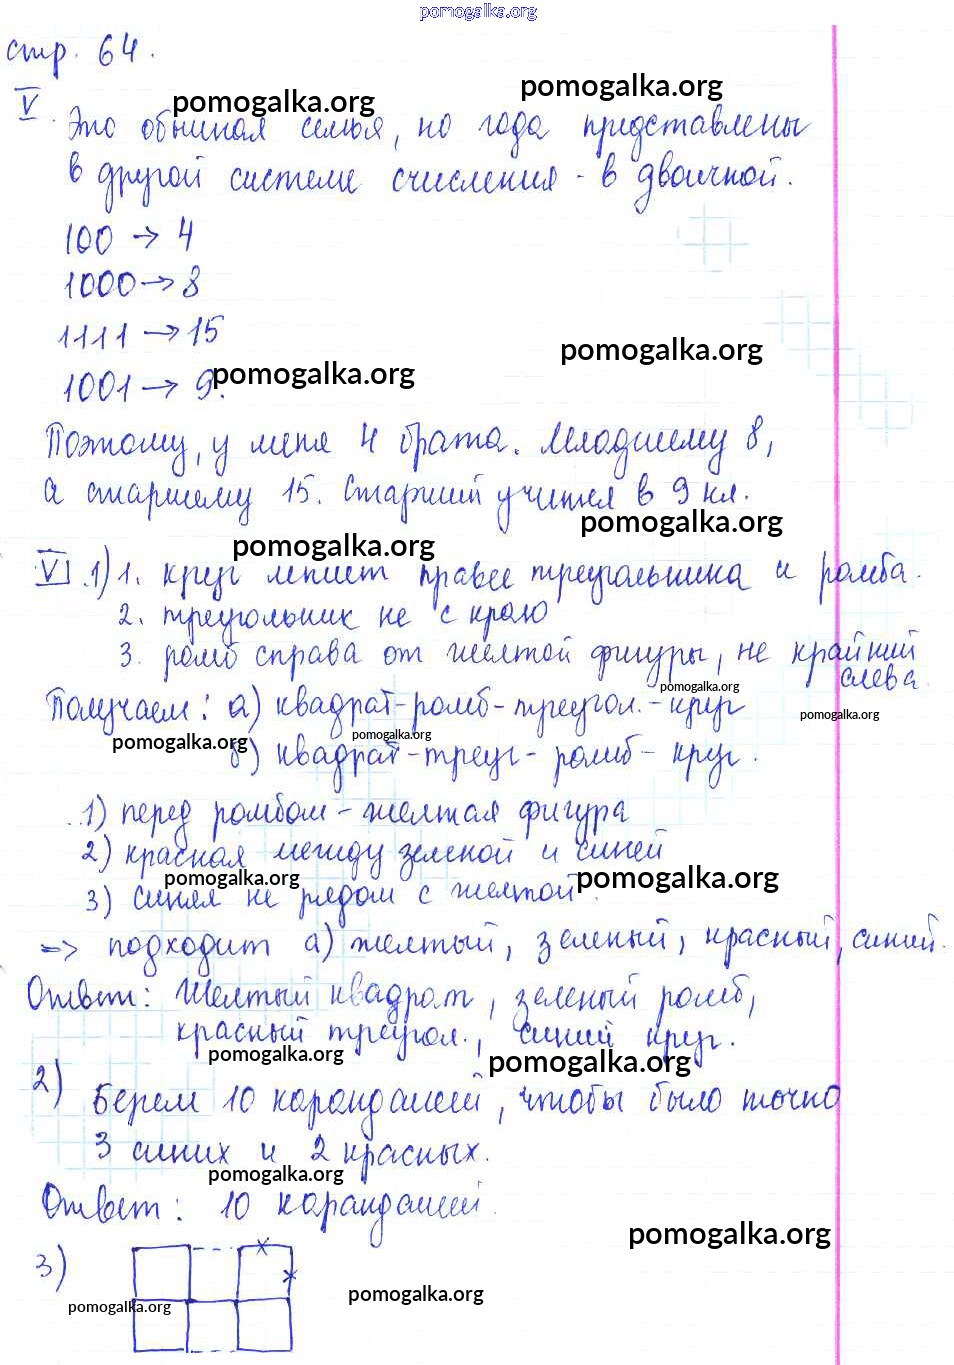 pomogalka.org
стр. 64.
pomogalka.org pomogalka.org
V. Это обычная семья, но года представлены
в другой системе счисления - в двоичной.
100 → 4
1000 → 8
1111 → 15
pomogalka.org
1001 → 9.
pomogalka.org
Поэтому, у меня 4 брата. Младшему 8,
а старшему 15. Старший учится в 9 кл.
pomogalka.org
pomogalka.org
VI. 1) 1. круг лежит правее треугольника и ромба.
2. треугольник не с краю
3. ромб справа от желтой фигуры, не крайний
слева.
pomogalka.org
Получаем: а) квадрат-ромб-треугол.-круг
pomogalka.org
pomogalka.org
pomogalka.org
б) квадрат-треуг-ромб-круг.
1) перед ромбом-желтая фигура
2) красная между зеленой и синей
pomogalka.org pomogalka.org
3) синяя не рядом с желтой.
=> подходит а) желтый, зеленый, красный, синий.
Ответ: Желтый квадрат, зеленый ромб,
красный треугол., синий круг.
pomogalka.org pomogalka.org
2) Берем 10 карандашей, чтобы было точно
3 синих и 2 красных.
pomogalka.org
Ответ: 10 карандашей.
pomogalka.org
3)
pomogalka.org
pomogalka.org